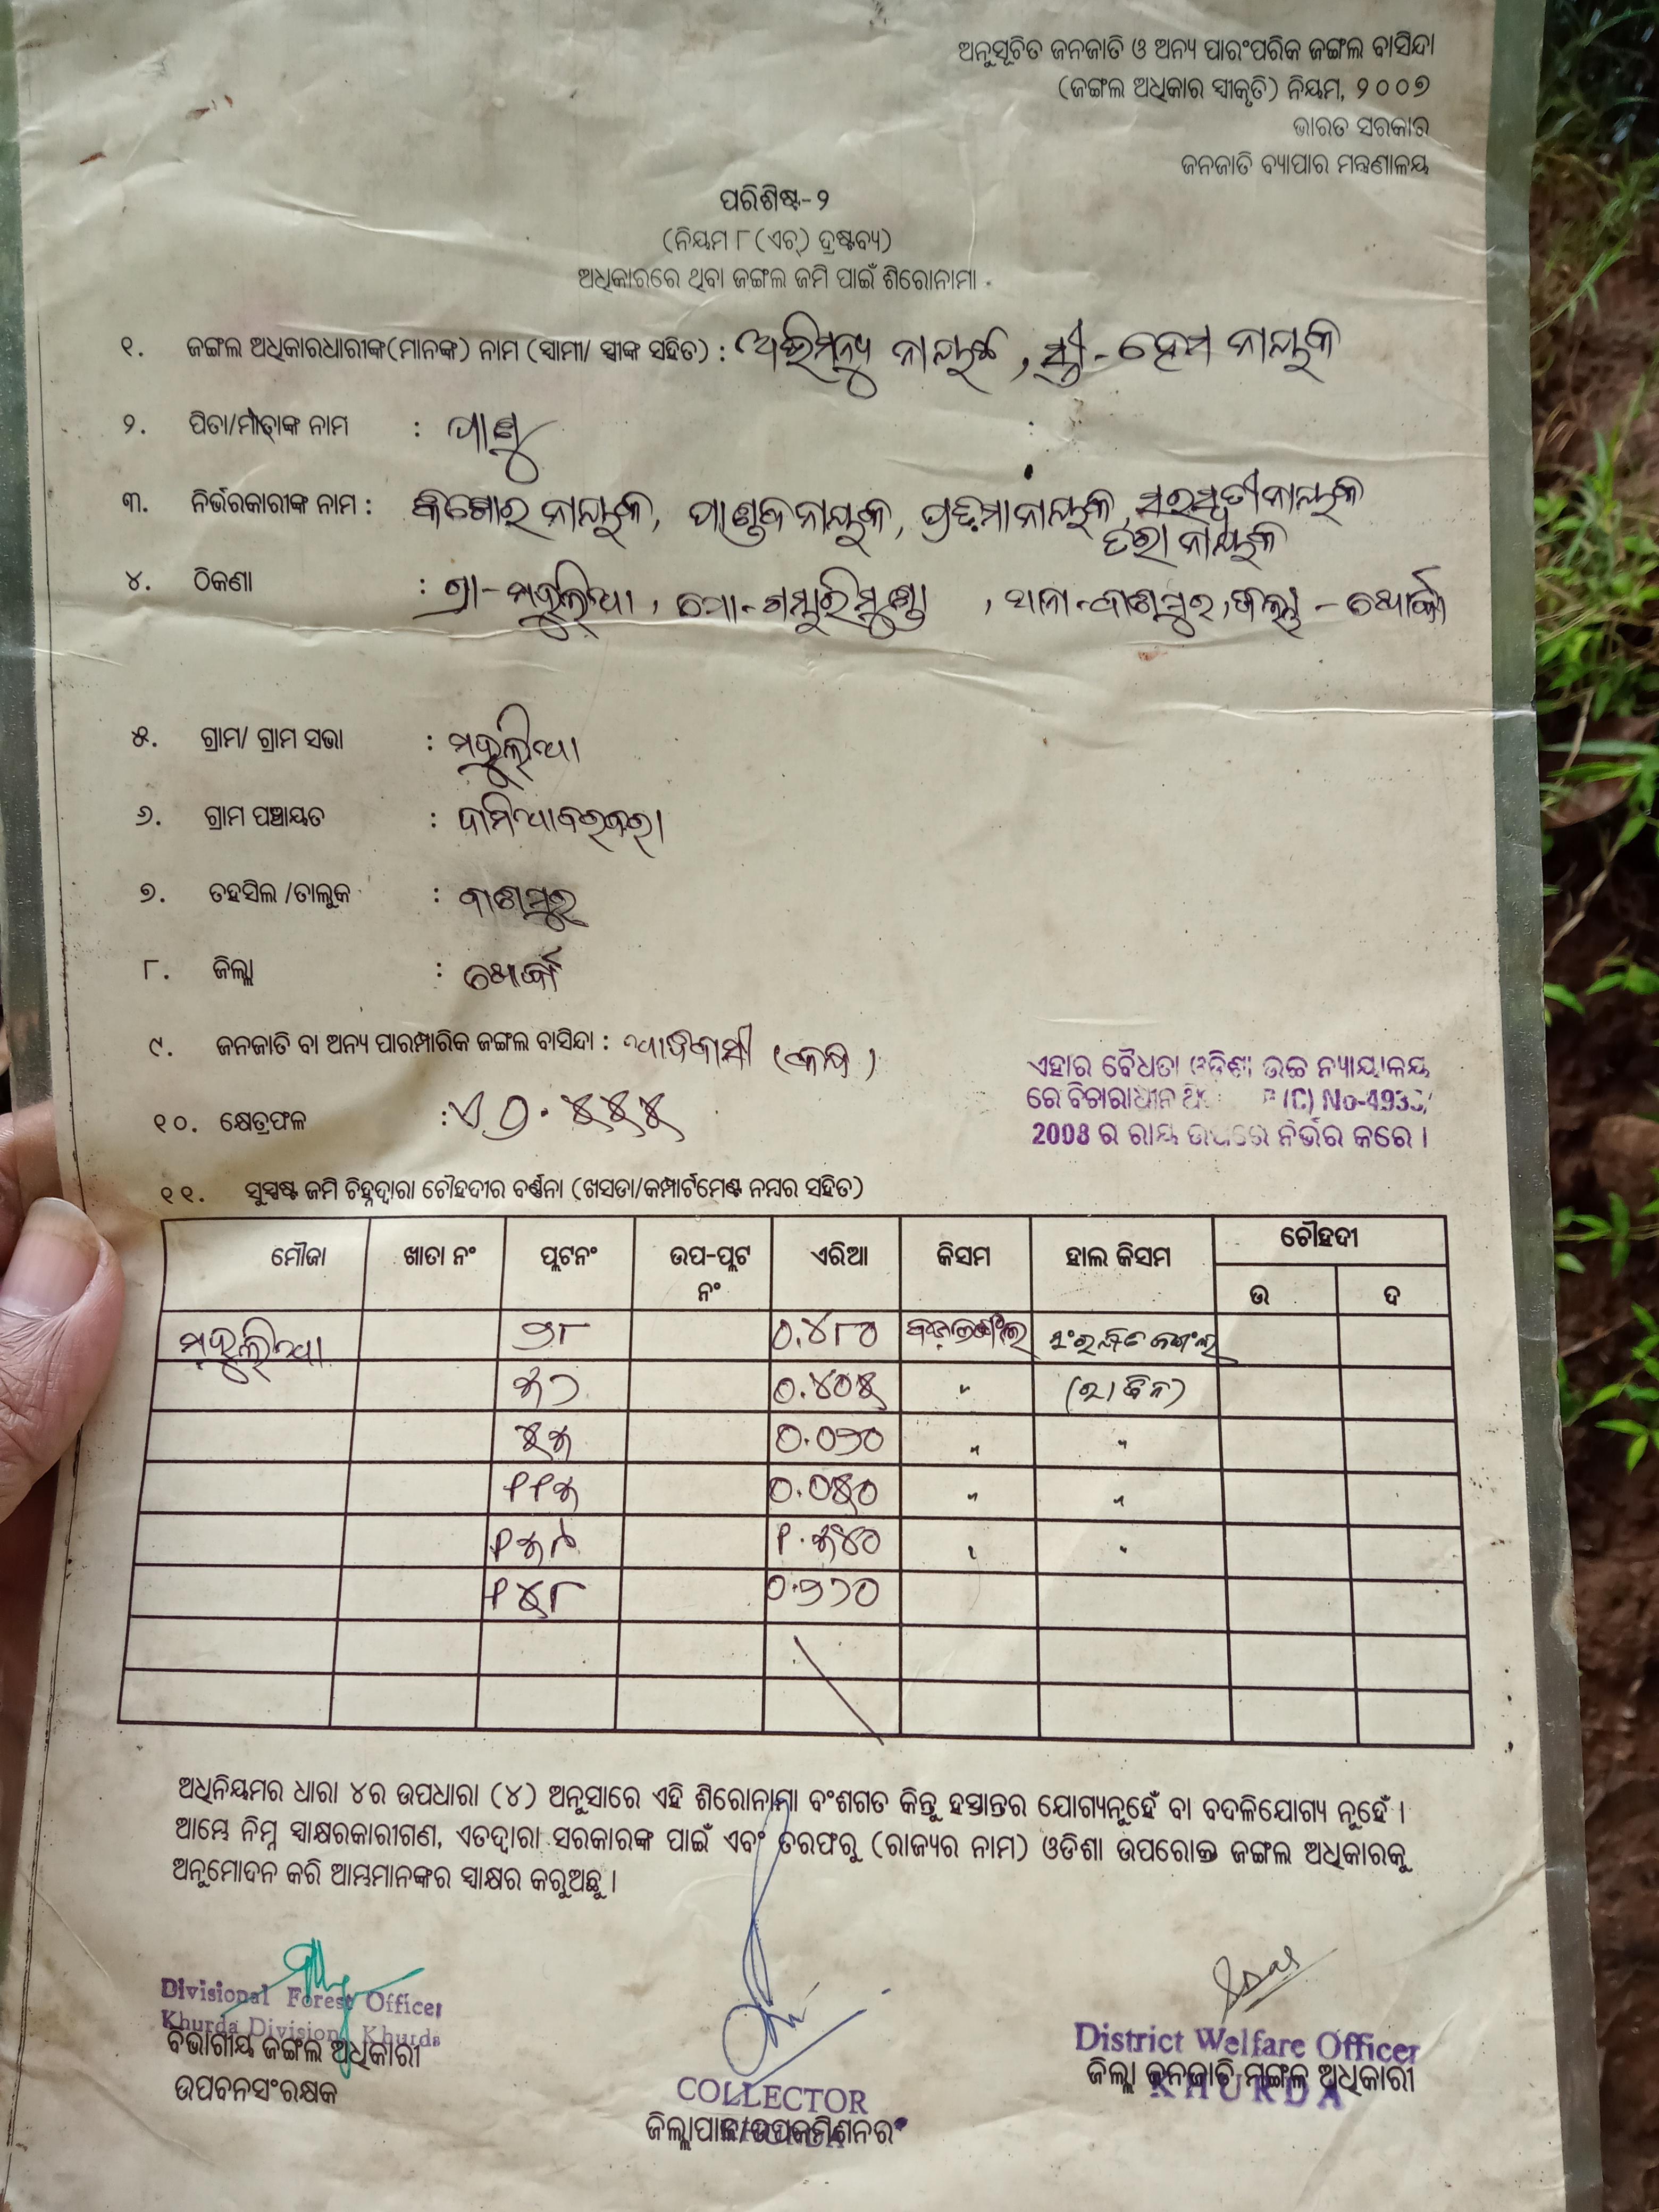 ଅନୁସୂଚିତ ଜନଜାତି ଓ ଅନ୍ୟ ପାରଂପରିକ ଜଙ୍ଗଲ ବାସିନ୍ଦା
(ଜଙ୍ଗଲ ଅଧିକାର ସ୍ୱୀକୃତି) ନିୟମ, ୨୦୦୭
ଭାରତ ସରକାର
ଜନଜାତି ବ୍ୟାପାର ମନ୍ତ୍ରଣାଳୟ
ପରିଶିଷ୍ଟ-୨
(ନିୟମ ୮(ଏଚ୍) ଦ୍ରଷ୍ଟବ୍ୟ)
ଅଧିକାରରେ ଥିବା ଜଙ୍ଗଲ ଜମି ପାଇଁ ଶିରୋନାମା
୧. ଜଙ୍ଗଲ ଅଧିକାରଧାରୀଙ୍କ(ମାନଙ୍କ) ନାମ (ସ୍ୱାମୀ/ ସ୍ତ୍ରୀଙ୍କ ସହିତ) : ଅଭିମନ୍ୟୁ ନାୟକ, ସ୍ତ୍ରୀ - ହେମ ନାୟକ
୨. ପିତା/ମାତାଙ୍କ ନାମ : ପାଣୁ
୩. ନିର୍ଭରକାରୀଙ୍କ ନାମ : କିଶୋର ନାୟକ, ପାଣ୍ଡବ ନାୟକ, ନାୟକ, ସରସ୍ୱତୀ ନାୟକ
ନାୟକ
୪. ଠିକଣା : ଗ୍ରା-ମହୁଲିଆ, ପୋ-ଗମ୍ଭାରିମୁଣ୍ଡା, ଥାନା-ବାଣପୁର, ଜିଲ୍ଲା - ଖୋର୍ଦ୍ଧା
୫. ଗ୍ରାମ/ ଗ୍ରାମ ସଭା : ମହୁଲିଆ
୬. ଗ୍ରାମ ପଞ୍ଚାୟତ : ଦାମିଆବରବରା
୭. ତହସିଲ /ତାଲୁକ : ବାଣପୁର
୮. ଜିଲ୍ଲା : ଖୋର୍ଦ୍ଧା
୯. ଜନଜାତି ବା ଅନ୍ୟ ପାରମ୍ପାରିକ ଜଙ୍ଗଲ ବାସିନ୍ଦା : ଆଦିବାସୀ (କନ୍ଧ)
ଏହାର ବୈଧତା ଓଡ଼ିଶା ଉଚ୍ଚ ନ୍ୟାୟାଳୟ
ରେ ବିଚାରାଧୀନ (C) No-4933/
2008 ର ରାୟ ଉପରେ ନିର୍ଭର କରେ ।
୧୦. କ୍ଷେତ୍ରଫଳ : ଏ
୧୧. ସୁସ୍ପଷ୍ଟ ଜମି ଚିହ୍ନଦ୍ୱାରା ଚୌହଦୀର ବର୍ଣ୍ଣନା (ଖସଡା/କମ୍ପାର୍ଟମେଣ୍ଟ ନମ୍ବର ସହିତ)
ମୌଜା ଖାତା ନଂ ପ୍ଲଟନଂ ଉପ-ପ୍ଲଟ ନଂ ଏରିଆ କିସମ ହାଲ କିସମ ଚୌହଦୀ
ଉ ଦ
ମହୁଲିଆ ୨୮ ୦.୪୮୦ ସଂରକ୍ଷିତ ଜଙ୍ଗଲ
୦.୪୦୫ "
୦.୦୨୦ " "
୦.୦୫୦ " "
" "
୧୪୮
ଅଧିନିୟମର ଧାରା ୪ର ଉପଧାରା (୪) ଅନୁସାରେ ଏହି ଶିରୋନାମା ବଂଶଗତ କିନ୍ତୁ ହସ୍ତାନ୍ତର ଯୋଗ୍ୟନୁହେଁ ବା ବଦଳିଯୋଗ୍ୟ ନୁହେଁ ।
ଆମ୍ଭେ ନିମ୍ନ ସ୍ୱାକ୍ଷରକାରୀଗଣ, ଏତଦ୍ୱାରା ସରକାରଙ୍କ ପାଇଁ ଏବଂ ତରଫରୁ (ରାଜ୍ୟର ନାମ) ଓଡିଶା ଉପରୋକ୍ତ ଜଙ୍ଗଲ ଅଧିକାରକୁ
ଅନୁମୋଦନ କରି ଆମ୍ଭମାନଙ୍କର ସ୍ୱାକ୍ଷର କରୁଅଛୁ ।
Divisional Forest Officer
Khurda Division Khurda
ବିଭାଗୀୟ ଜଙ୍ଗଲ ଅଧିକାରୀ
ଉପବନସଂରକ୍ଷକ
COLLECTOR
ଜିଲ୍ଲାପାଳ/ଉପକମିଶନର
District Welfare Officer
ଜିଲ୍ଲା ଜନଜାତି ମଙ୍ଗଳ ଅଧିକାରୀ
KHURDA